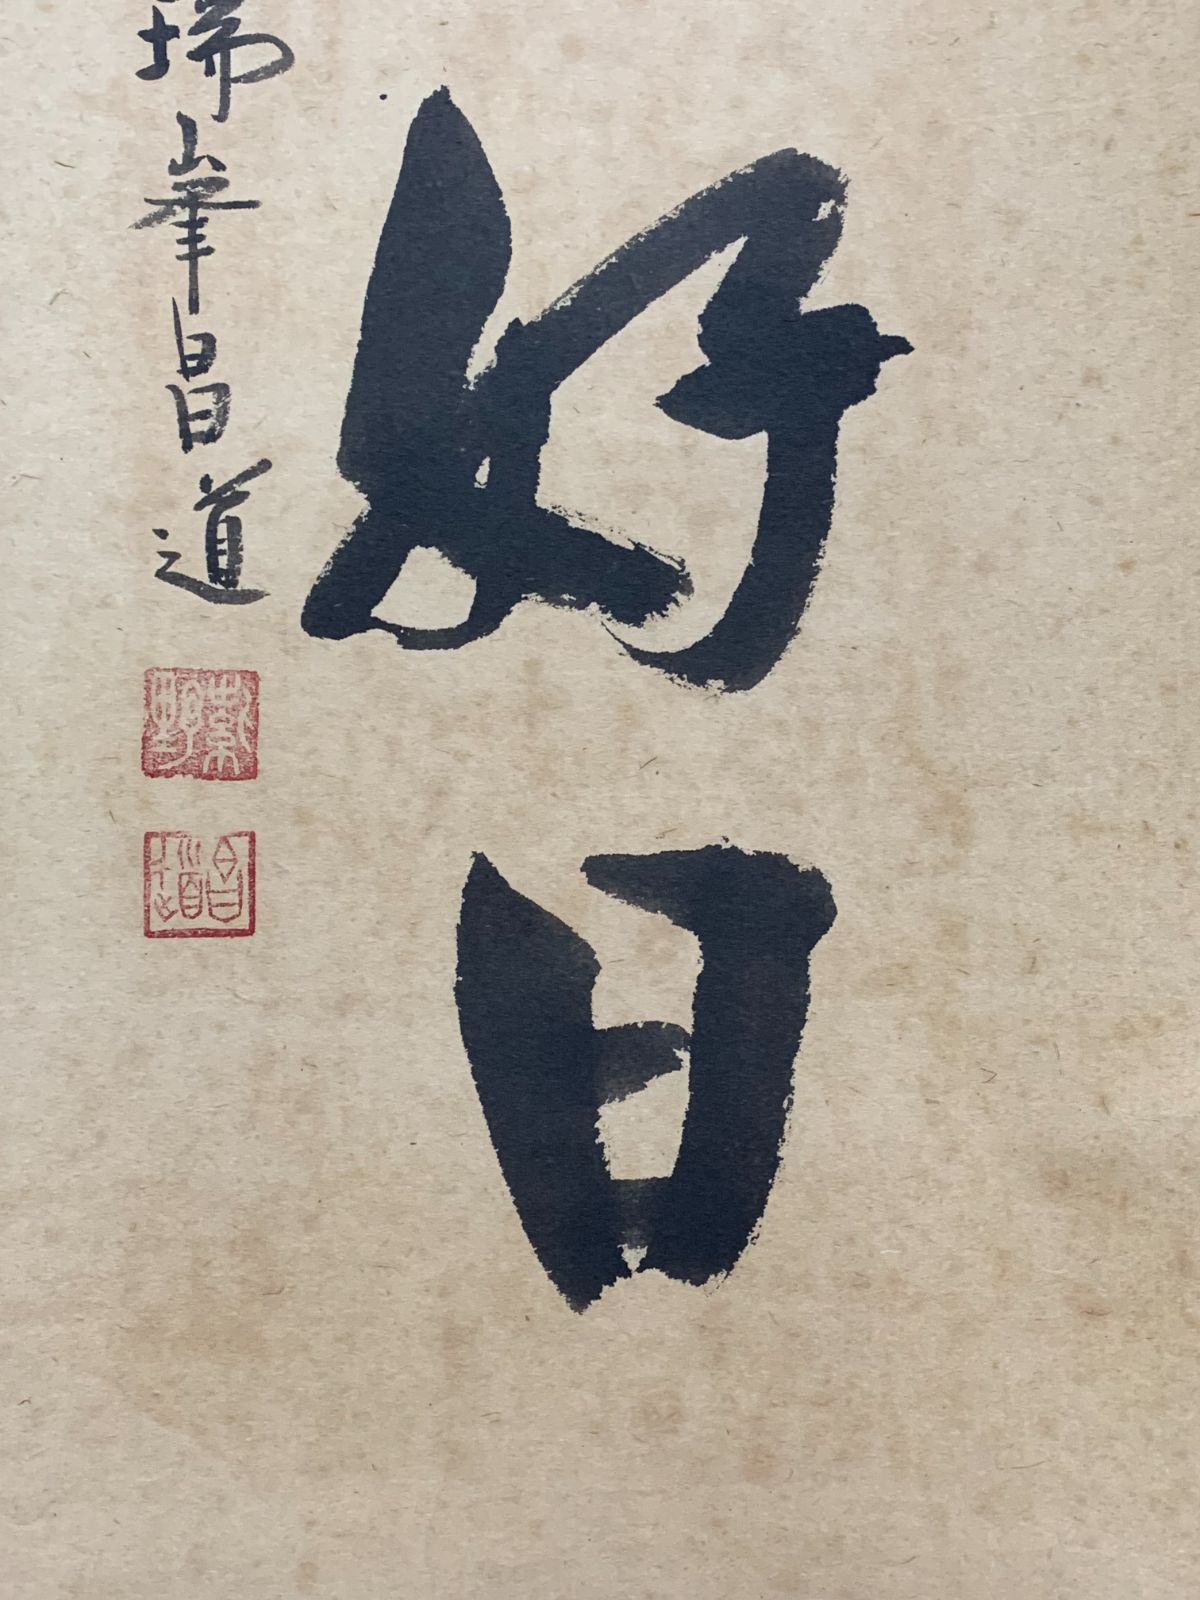 好日
瑞峯昌道
昌道